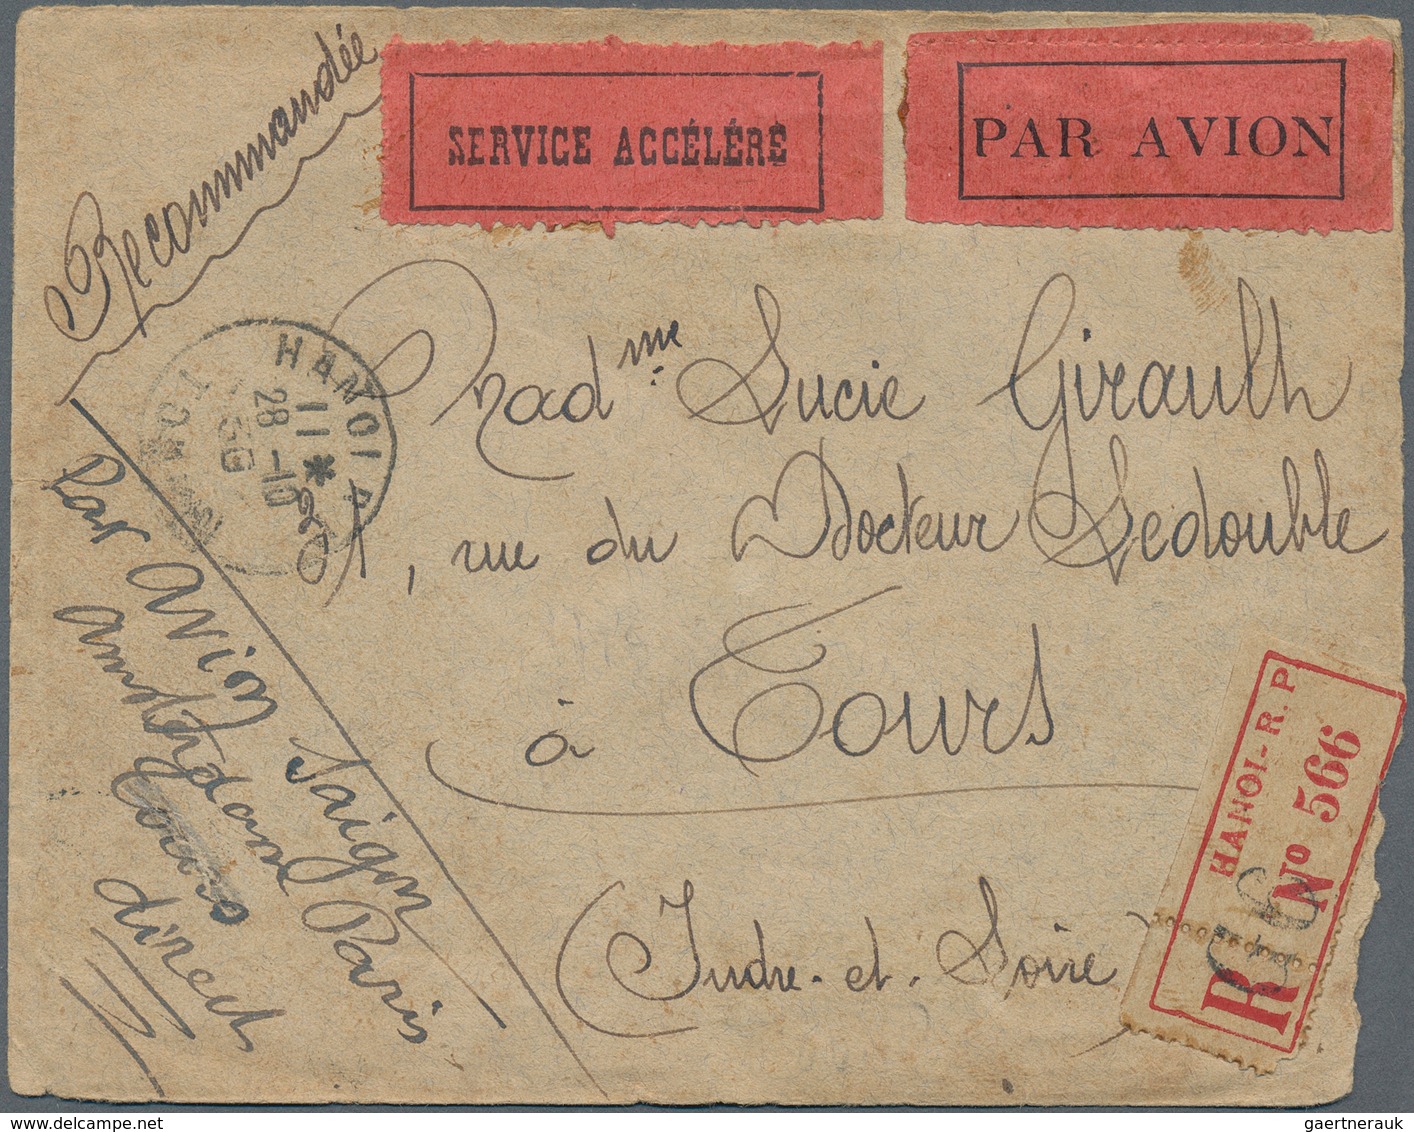 Recommandée
SERVICE ACCÉLÉRÉ
PAR AVION
HANOI
11 *
28 -10
TONKIN
Madme Sucie Girault
1, rue du Docteur Ledouble
à Tours
(Indre-et-Loire)
Par avion Saigon
amsterdam Paris
direct
HANOI-R.P
R Nº 566
gaertnerauk@delcampe.net